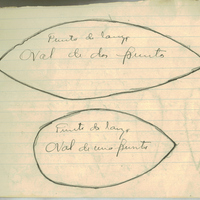 Punto de lanza
Oval de dos punta
Punto de lanza
Oval de una punta